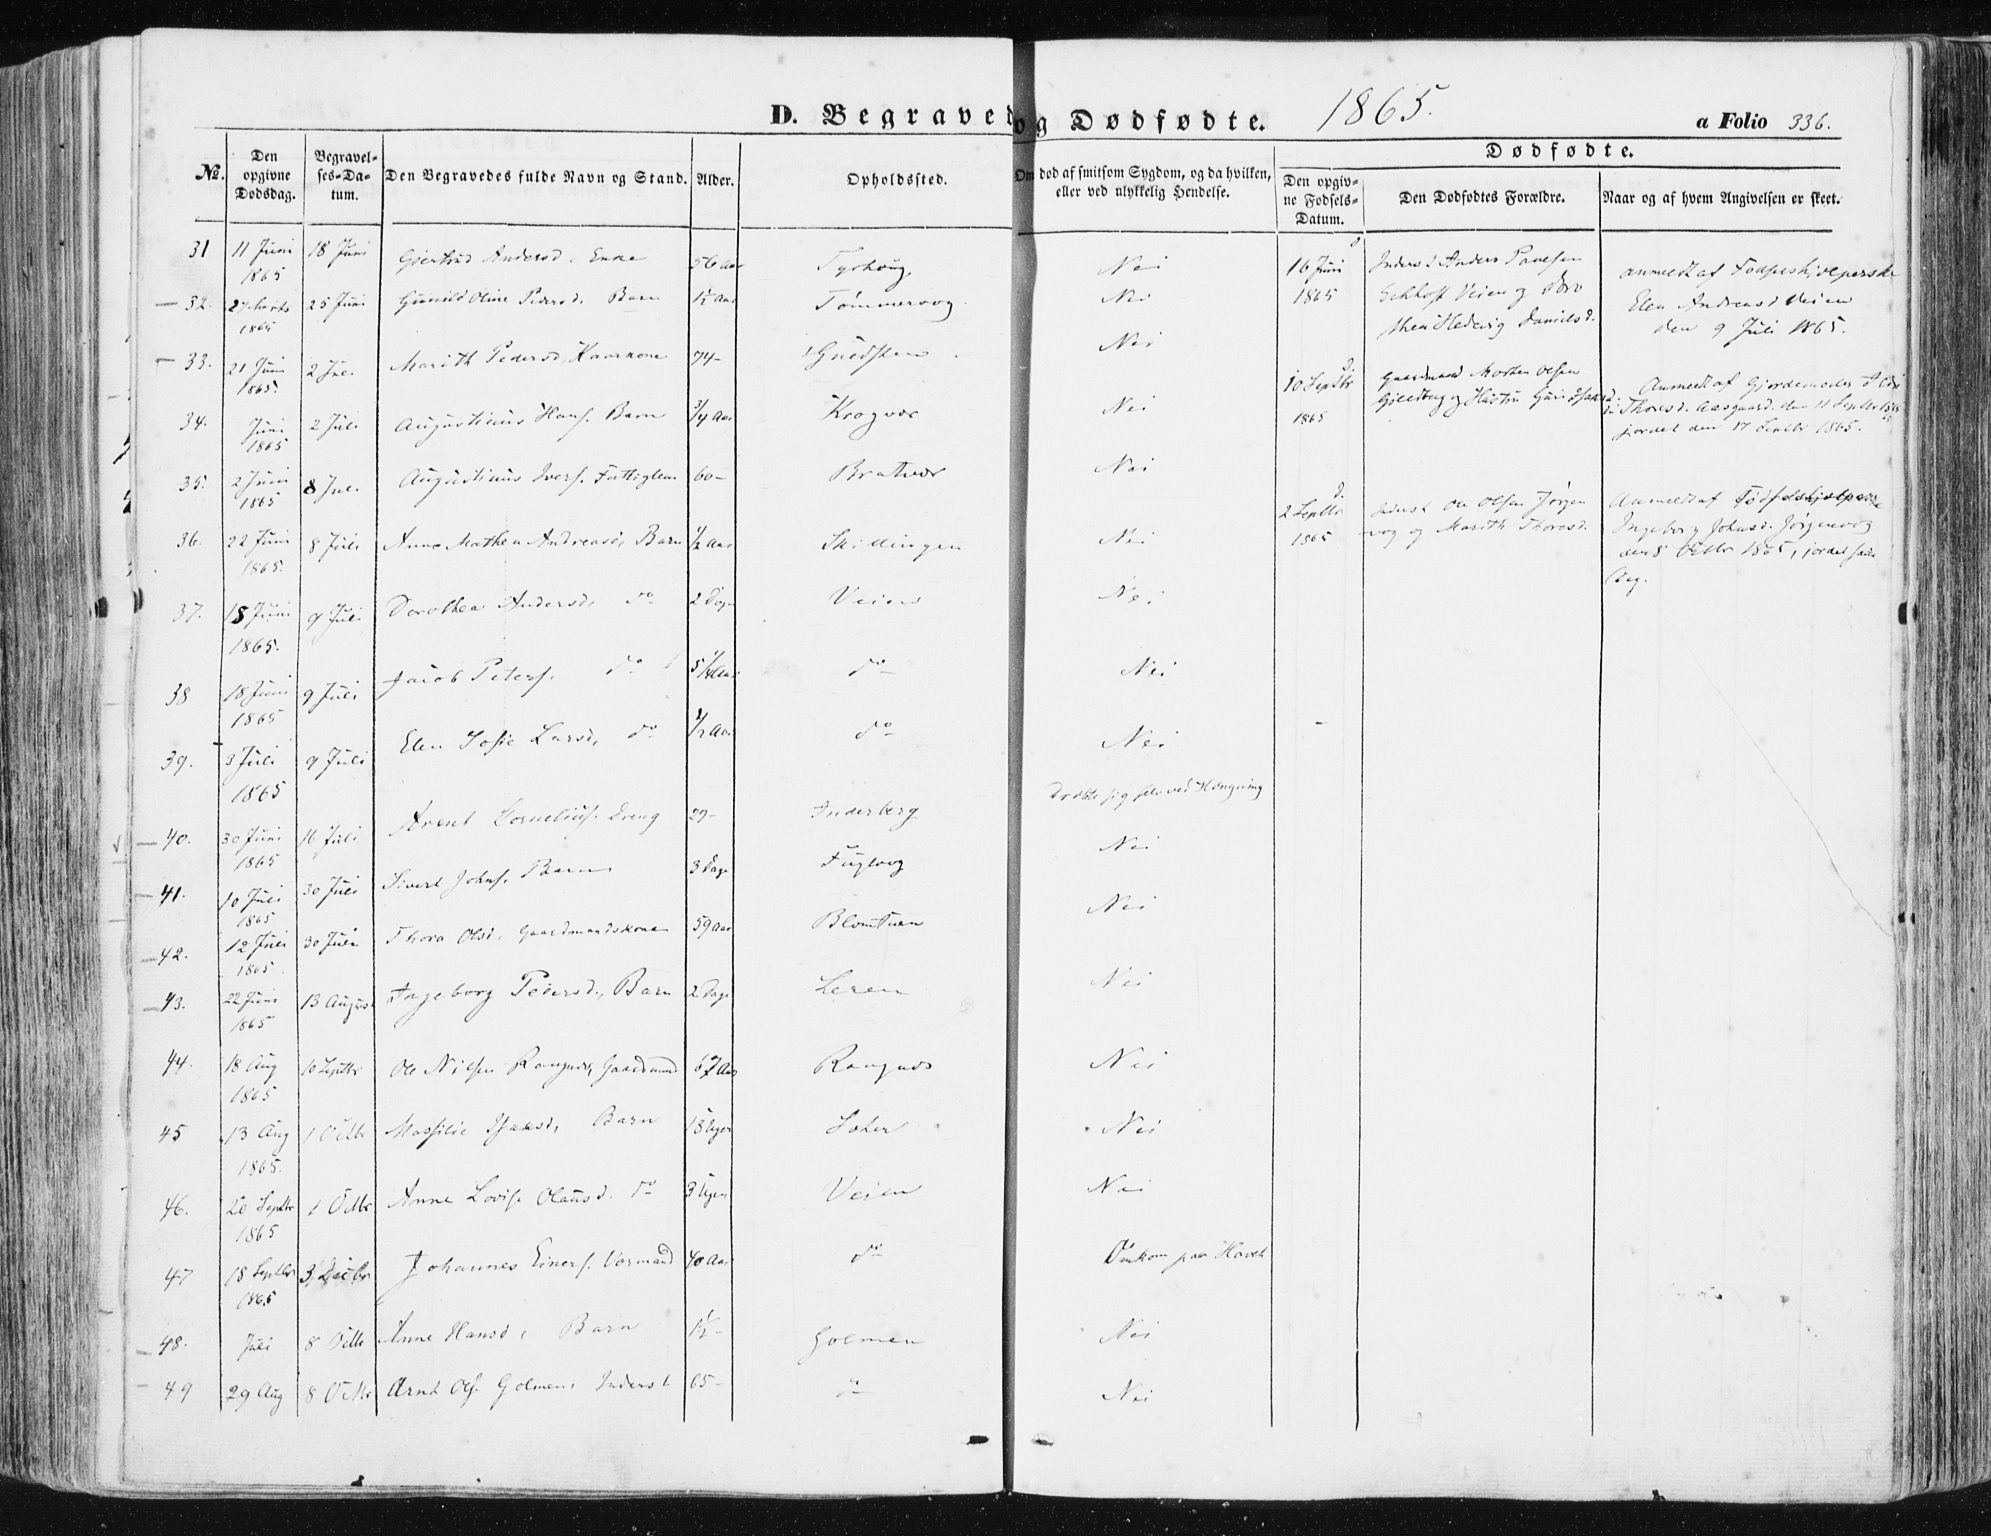 D. Begravede og Dødfødte. 1865. a Folio 336.
No. Den opgivne Dødsdag. Begravelses-Datum. Den Begravedes fulde Navn og Stand. Alder. Opholdssted. Om død af smitsom Sygdom, og da hvilken, eller ved ulykkelig Hendelse.
Dødfødte.
Den opgivne Fødsels-Datum. Den Dødfødtes Forældre. Naar og af hvem Angivelsen er skeet.
31 11 Juni 1865 18 Juni Gjertrud Andersd. Enke 56 Aar Nei
32. 27 Marts 1865 25 Juni Gunild Oline Pedersd. Barn 1½ Aar Tømmervog Nei
33. 21 Juni 1865. 2 Juli Marith Pedersd. 74 – Nei
34. Juni 1865 2 Juli Augustinus Hansf. Barn 3/4 Aar Krogvær Nei
35. 2 Juni 1865 8 Juli Augustinus Iversf. Fattiglem 60 – Bratvær Nei
36. 22 Juni 1865. 8 Juli Anne Mathea Andreasd. Barn 1/2 Aar Skidlingen Nei
37. 18 Juni 1865. 9 Juli Dorothea Andersd. do 2 Dage Veien Nei
38 18 Juni 1865 9 Juli Jacob Petersf. do do Nei
39. 3 Juli 1865 9 Juli Elen Sofie Larsd. do 1/2 Aar do Nei
40. 30 Juni 1865 16 Juli Arent Corneliusf. Dreng 29 – Inderberg Dræbte sig selv ved Hængning
41. 10 Juli 1865 30 Juli Sivert Johnsf. Barn 3 Dage Fuglvog Nei
42. 12 Juli 1865. 30 Juli Thora Olsd. Gaardmandskone 59 Aar Blomtuen Nei
43. 22 Juni 1865 13 August Ingeborg Pedersd., Barn 2 Dage Leren Nei
44. 18 Aug 1865 10 Septbr Ole Nilsen Rangnæs, Gaardmand 67 Aar Rangnæs Nei
45 13 Aug 1865. 1 Octbr Isaksd, Barn 18 Uger Nei
46. 20 Septbr 1865 1 Octbr Anne Lovise Olausd. do 3 Uger Veien Nei
47 18 Septbr 1865 Johannes Einersf. 40 Aar do Omkom paa Havet
48. Juli 8 Octbr Anne Hansd, Barn 1½ – Golmen Nei
49 29 Aug 8 Octbr Arnt Olsf. Golmen, Inderst 65 – do Nei
16 Juni 1865 Inderst Anders Paulsen Veien og Dorothea Hedevig Danielsd. anmeldt af Fødselshjelperske Elen Andreasd Veien den 9 Juli 1865.
10 Septbr 1865 Gaardmand Morten Olsen og Hustru Guri Isaksd. Anmeldt af Gjordemoder Thoresd. Aasgaard den 11 Septbr jordet den 17 Septbr 1865.
2 Septbr 1865 Inderst Ole Olsen Jørgenvog og Marith Thoresd. Anmeldt af Fødselshjelperske Ingeborg Johnsd. Jørgenvog den 8 Octbr 1865, jordet samme Dag.